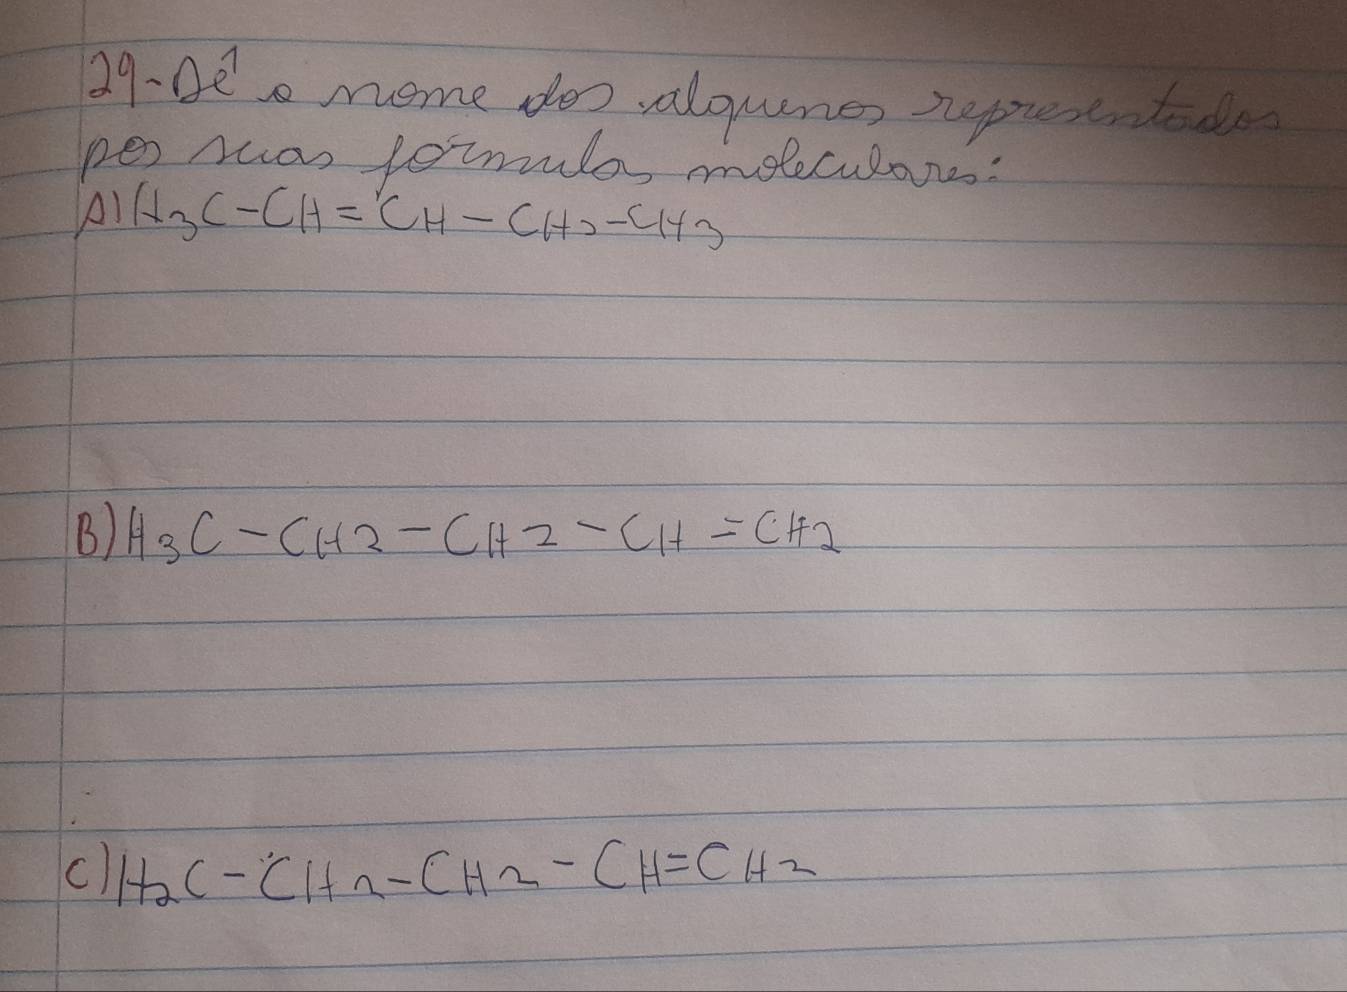 29-Dê o nome dos alquenos representados
por suas fórmulas moleculares:
A) H3C-CH=CH-CH2-CH3
B) H3C-CH2-CH2-CH=CH2
C) H2C-CH2-CH2-CH=CH2